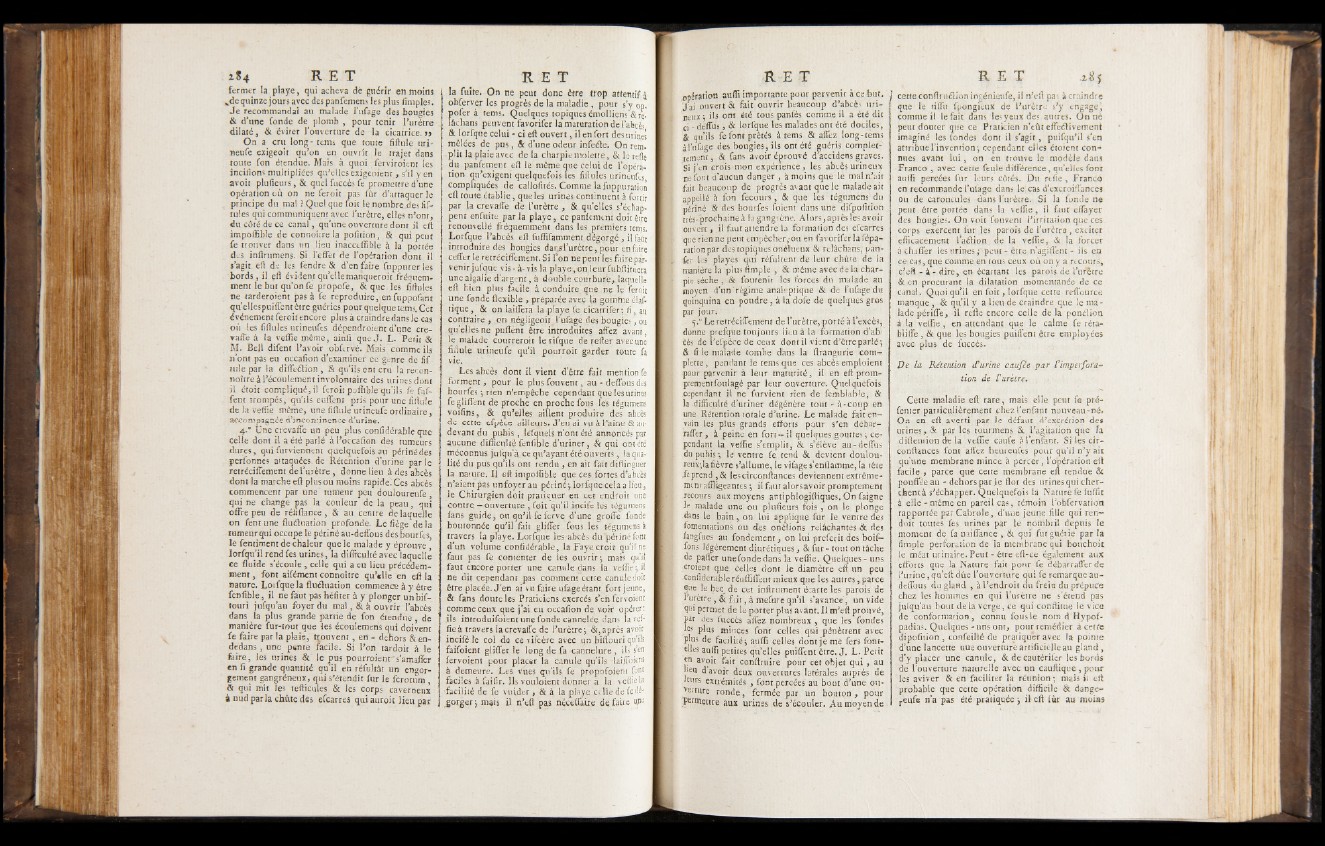 284 R E T
fermer la playe, qui acheva de guérir en moins
de quinze jours avec des pansemens les plus simples.
Je recommandai au malade l'usage des bougies
& d'une sonde de plomb, pour tenir l'urètre
dilaté, & éviter l'ouverture de la cicatrice. »
On a cru long-tems que toute fistule uri-
neuse exigeoit qu'on en ouvrit le trajet dans
toute son étendue. Mais à quoi serviroient les
incisions multipliées qu'elles exigeroient, s'il y en
avoit plusieurs, & quel succès se promettre d'une
opération où on ne seroit pas sûr d'attaquer le
principe du mal ? Quel que soit le nombre des fis-
tules qui communiquent avec l'urètre, elles n'ont,
du côté de ce canal, qu'une ouverture dont il est
impossible de connoître la position, & qui peut
se trouver dans un lieu inaccessible à la portée
des instrumens. Si l'effet de l'opération dont il
s'agit est de les fendre & d'en faire supporter les
bords, il est évident qu'elle manqueroit fréquem-
ment le but qu'on se propose, & que les fistules
ne tarderoient pas à se reproduire, en supposant
qu'elles puissent être guéries pour quelque tems. Cet
événement seroit encore plus à craindre dans le cas
où les fistules urineuses dépendroient d'une cre-
vasse à la vessie même, ainsi que J. L. Petit &
M. Bell disent l'avoir observé. Mais comme ils
n'ont pas eu occasion d'examiner ce genre de fis-
tule par la dissection, & qu'ils ont cru la recon-
noître à l'écoulement involontaire des urines dont
il étoit compliqué, il seroit possible qu'ils se fus-
sent trompés, qu'ils eussent pris pour une fistule
de la vessie même, une fistule urineuse ordinaire,
accompagnée d'incontinence d'urine.
4.° Une crevasse un peu plus considérable que
celle dont il a été parlé à l'occasion des tumeurs
dures, qui surviennent quelquefois au périné des
personnes attaquées de Rétention d'urine par le
retrécissement de l'urètre, donne lieu à des abcès
dont la marche est plus ou moins rapide. Ces abcès
commencent par une tumeur peu douloureuse,
qui ne change pas la couleur de la peau, qui
offre peu de résistance, & au centre de laquelle
on sent une fluctuation profonde. Le siége de la
tumeur qui occupe le périné au-dessous des bourses,
le sentiment de chaleur que le malade y éprouve,
lorsqu'il rend ses urines, la difficulté avec laquelle
ce fluide s'écoule, celle qui a eu lieu précédem-
ment, font aisément connoître qu'elle en est la
nature. Lorsque la fluctuation commence à y être
sensible, il ne faut pas hésiter à y plonger un bis-
touri jusqu'au foyer du mal, & à ouvrir l'abcès
dans la plus grande partie de son étendue, de
manière sur-tout que les écoulemens qui doivent
se faire par la plaie, trouvent, en-dehors & en-
dedans, une pente facile. Si l'on tardoit à le
faire, les urines & le pus pourroient s'amasser
en si grande quantité qu'il en résultât un engor-
gement gangréneux, qui s'étendît sur le scrotum,
& qui mit les testicules & les corps caverneux
à nud par la chûte des escarres qui auroit lieu par
R E T
la suite. On ne peut donc être trop attentif à
observer les progrès de la maladie, pour s'y op-
poser à tems. Quelques topiques émolliens & re-
lâchans peuvent favoriser la maturation de l'abcès,
& lorsque celui-ci est ouvert, il en sort des urines
mêlées de pus, & d'une odeur infecte. On rem-
plit la plaie avec de la charpie molette, & le reste
du pansement est le même que celui de l'opéra-
tion qu'exigent quelquefois les fistules urineuses,
compliquées de callosités. Comme la suppuration
est toute établie, que les urines continuent à sortir
par la crevasse de l'urètre, & qu'elles s'échap-
pent ensuite par la playe, ce pansement doit être
renouvellé fréquemment dans les premiers tems.
Lorsque l'abcès est suffisamment dégorgé, il faut
introduire des bougies dans l'urètre, pour en faire
cesser le retrécissement. Si l'on ne peut les faire par-
venir jusque vis-à-vis la playe, on leur substituera
une algalie d'argent, à double courbure, laquelle
est bien plus facile à conduire que ne le seroit
une sonde flexible, préparée avec la gomme élas-
tique, & on laissera la playe se cicatriser : si, au
contraire, on négligeoit l'usage des bougies, ou
qu'elles ne pussent être introduites assez avant,
le malade courreroit le risque de rester avec une
fistule urineuse qu'il pourroit garder toute sa
vie.
Les abcès dont il vient d'être fait mention se
forment, pour le plus souvent, au-dessous des
bourses ; rien n'empêche cependant que les urines
se glissent de proche en proche sous les tégumens
voisins, & qu'elles aillent produire des abcès
de cette espèce ailleurs. J'en ai vu à l'aine & au-
devant du pubis, lesquels n'ont été annoncés par
aucune difficulté sensible d'uriner, & qui ont été
méconnus jusqu'à ce qu'ayant été ouverts, la qua-
lité du pus qu'ils ont rendu, en ait fait distinguer
la nature. Il est impossible que ces sortes d'abcès
n'aient pas un foyer au périné ; lorsque cela a lieu,
le Chirurgien doit pratiquer en cet endroit une
contre-ouverture, soit qu'il incise les tégumens
sans guide, ou qu'il se serve d'une grosse sonde
boutonnée qu'il fait glisser sous les tégumens à
travers la playe. Lorsque les abcès du périné sont
d'un volume considérable, la Faye croit qu'il ne
faut pas se contenter de les ouvrir ; mais qu'il
faut encore porter une canule dans la vessie ; il
ne dit cependant pas comment cette canule doit
être placée. J'en ai vu faire usage étant fort jeune,
& sans doute les Praticiens exercés s'en servoient
comme ceux que j'ai eu occasion de voir opérer :
ils introduisoient une sonde cannelée dans la ves-
sie à travers la crevasse de l'urètre ; &, après avoir
incisé le col de ce viscère avec un bistouri qu'ils
faisoient glisser le long de sa cannelure, ils s'en
servoient pour placer la canule qu'ils laissoient
à demeure. Les vues qu'ils se proposoient sont
faciles à saisir. Ils vouloient donner à la vessie la
facilité de se vuider, & à la playe celle de se dé-
gorger ; mais il n'est pas nécessaire de faire une
R E T
opération aussi importante pour parvenir à ce but.
J'ai ouvert & fait ouvrir beaucoup d'abcès uri-
neux ; ils ont été tous pansés comme il a été dit
ci-dessus, & lorsque les malades ont été dociles,
& qu'ils se sont prêtés à tems & assez long-tems
à l'usage des bougies, ils ont été guéris complet-
tement, & sans avoir éprouvé d'accidens graves.
Si j'en crois mon expérience, les abcès urineux
ne sont d'aucun danger, à moins que le mal n'ait
fait beaucoup de progrès avant que le malade ait
appellé à son secours, & que les tégumens du
périné & des bourses soient dans une disposition
très-prochaine à la gangrène. Alors, après les avoir
ouvert, il faut attendre la formation des escarres
que rien ne peut empêcher, ou en favoriser la sépa-
ration par des topiques onctueux & relâchans, pan-
ser les playes qui résultent de leur chûte de la
manière la plus simple, & même avec de la char-
pie sèche, & soutenir les forces du malade au
moyen d'un régime analeptique & de l'usage du
quinquina en poudre, à la dose de quelques gros
par jour.
5.° Le retrécissement de l'urètre, porté à l'excès,
donne presque toujours lieu à la formation d'ab-
cès de l'espèce de ceux dont il vient d'être parlé ;
& si le malade tombe dans la strangurie com-
plette, pendant le tems que ces abcès emploient
pour parvenir à leur maturité, il en est prom-
ptement soulagé par leur ouverture. Quelquefois
cependant il ne survient rien de semblable, &
la difficulté d'uriner dégénère tout-à-coup en
une Rétention totale d'urine. Le malade fait en-
vain les plus grands efforts pour s'en débar-
rasser, à peine en sort-il quelques gouttes ; ce-
pendant la vessie s'emplit, & s'élève au-dessus
du pubis ; le ventre se tend & devient doulou-
reux ; la fièvre s'allume, le visage s'enflamme, la tête
se prend, & les circonstances deviennent extrême-
ment affligeantes ; il faut alors avoir promptement
recours aux moyens antiphlogistiques. On saigne
le malade une ou plusieurs fois, on le plonge
dans le bain, on lui applique sur le ventre des
fomentations ou des onctions relâchantes & des
sangsues au fondement, on lui prescrit des bois-
sons légèrement diurétiques, & sur-tout on tâche
de passer une sonde dans la vessie. Quelques-uns
croient que celles dont le diamètre est un peu
considérable réussissent mieux que les autres, parce
que le bec de cet instrument écarte les parois de
l'urètre, & fait, à mesure qu'il s'avance, un vide
qui permet de le porter plus avant. Il m'est prouvé,
par des succès assez nombreux, que les sondes
les plus minces sont celles qui pénètrent avec
plus de facilité ; aussi celles dont je me sers sont-
elles aussi petites qu'elles puissent être. J. L. Petit
en avoit fait construire pour cet objet qui, au
lieu d'avoir deux ouvertures latérales auprès de
leurs extrémités, sont percées au bout d'une ou-
verture ronde, fermée par un bouton, pour
permettre aux urines de s'écouler. Au moyen de
R E T 285
cette construction ingénieuse, il n'est pas à craindre
que le tissu spongieux de l'urètre s'y engage,
comme il le fait dans les yeux des autres. On ne
peut douter que ce Praticien n'eût effectivement
imaginé les sondes dont il s'agit, puisqu'il s'en
attribue l'invention ; cependant elles étoient con-
nues avant lui, on en trouve le modèle dans
Franco, avec cette seule différence, qu'elles sont
aussi percées sur leurs côtés. Du reste, Franco
en recommande l'usage dans le cas d'excroissances
ou de caroncules dans l'urètre. Si la sonde ne
peut être portée dans la vessie, il faut essayer
des bougies. On voit souvent l'irritation que ces
corps exercent sur les parois de l'urètre, exciter
efficacement l'action de la vessie, & la forcer
à chasser les urines ; peut-être n'agissent-ils en
ce cas, que comme en tous ceux où on y a recours,
c'est-à-dire, en écartant les parois de l'urètre
& en procurant la dilatation momentanée de ce
canal. Quoi qu'il en soit, lorsque cette ressource
manque, & qu'il y a lieu de craindre que le ma-
lade périsse, il reste encore celle de la ponction
à la vessie, en attendant que le calme se réta-
blisse, & que les bougies puissent être employées
avec plus de succès.
De la Rétention d'urine causée par l'imperfora-
tion de l'urètre.
Cette maladie est rare, mais elle peut se pré-
senter particulièrement chez l'enfant nouveau-né.
On en est averti par le défaut d'excrétion des
urines, & par les tourmens & l'agitation que la
distention de la vessie cause à l'enfant. Si les cir-
constances sont assez heureuses pour qu'il n'y ait
qu'une membrane mince à percer, l'opération est
facile, parce que cette membrane est tendue &
poussée au-dehors par le flot des urines qui cher-
chent à s'échapper. Quelquefois la Nature se suffit
à elle-même en pareil cas, témoin l'observation
rapportée par Cabrole, d'une jeune fille qui ren-
doit toutes ses urines par le nombril depuis le
moment de sa naissance, & qui fut guérie par la
simple perforation de la membrane qui bouchoit
le méat urinaire. Peut-être est-ce également aux
efforts que la Nature fait pour se débarrasser de
l'urine, qu'est dûe l'ouverture qui se remarque au-
dessous du gland, à l'endroit du frein du prépuce
chez les hommes en qui l'urètre ne s'étend pas
jusqu'au bout de la verge, ce qui constitue le vice
de conformation, connu sous le nom d'Hypos-
padias. Quelques-uns ont, pour remédier à cette
disposition, conseillé de pratiquer avec la pointe
d'une lancette une ouverture artificielle au gland,
d'y placer une canule, & de cautériser les bords
de l'ouverture naturelle avec un caustique, pour
les aviver & en faciliter la réunion ; mais il est
probable que cette opération difficile & dange-
reuse n'a pas été pratiquée ; il est sûr au moins